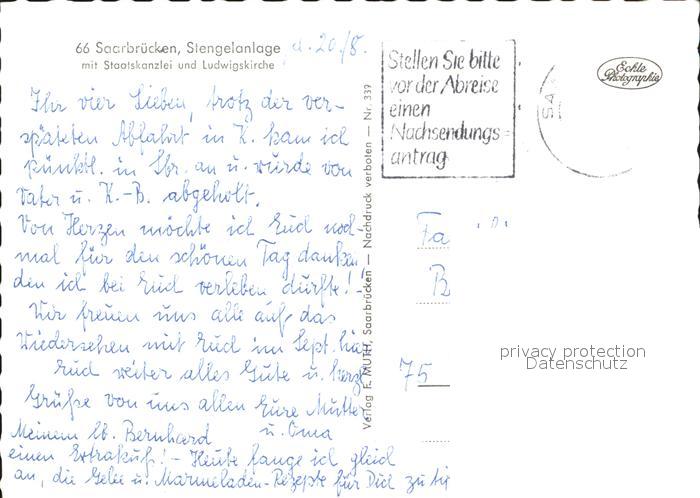 66 Saarbrücken, Stengelanlage d. 20./8.
mit Staatskanzlei und Ludwigskirche
Ihr vier Lieben, trotz der ver-
späteten Abfahrt in K. kam ich
pünktl. in Sbr. an u. wurde von
Vater u. K.-B. abgeholt.
Von Herzen möchte ich Euch noch-
mal für den schönen Tag danken,
den ich bei Euch verleben durfte! -
Wir freuen uns alle auf das
Wiedersehen mit Euch im Sept. hier
Euch weiter alles Gute u. herzl.
Grüße von uns allen Eure Mutter
u. Oma
Meinem lb. Bernhard
einen Extrakuß! - Heute fange ich gleich
an, die Gelee u. Marmeladen-Rezepte für Dich zu
Verlag F. MUTH, Saarbrücken — Nachdruck verboten — Nr. 339
Stellen Sie bitte
vor der Abreise
einen
Nachsendungs=
antrag
SA
Echte
Photographie
Fa
B
75
privacy protection
Datenschutz